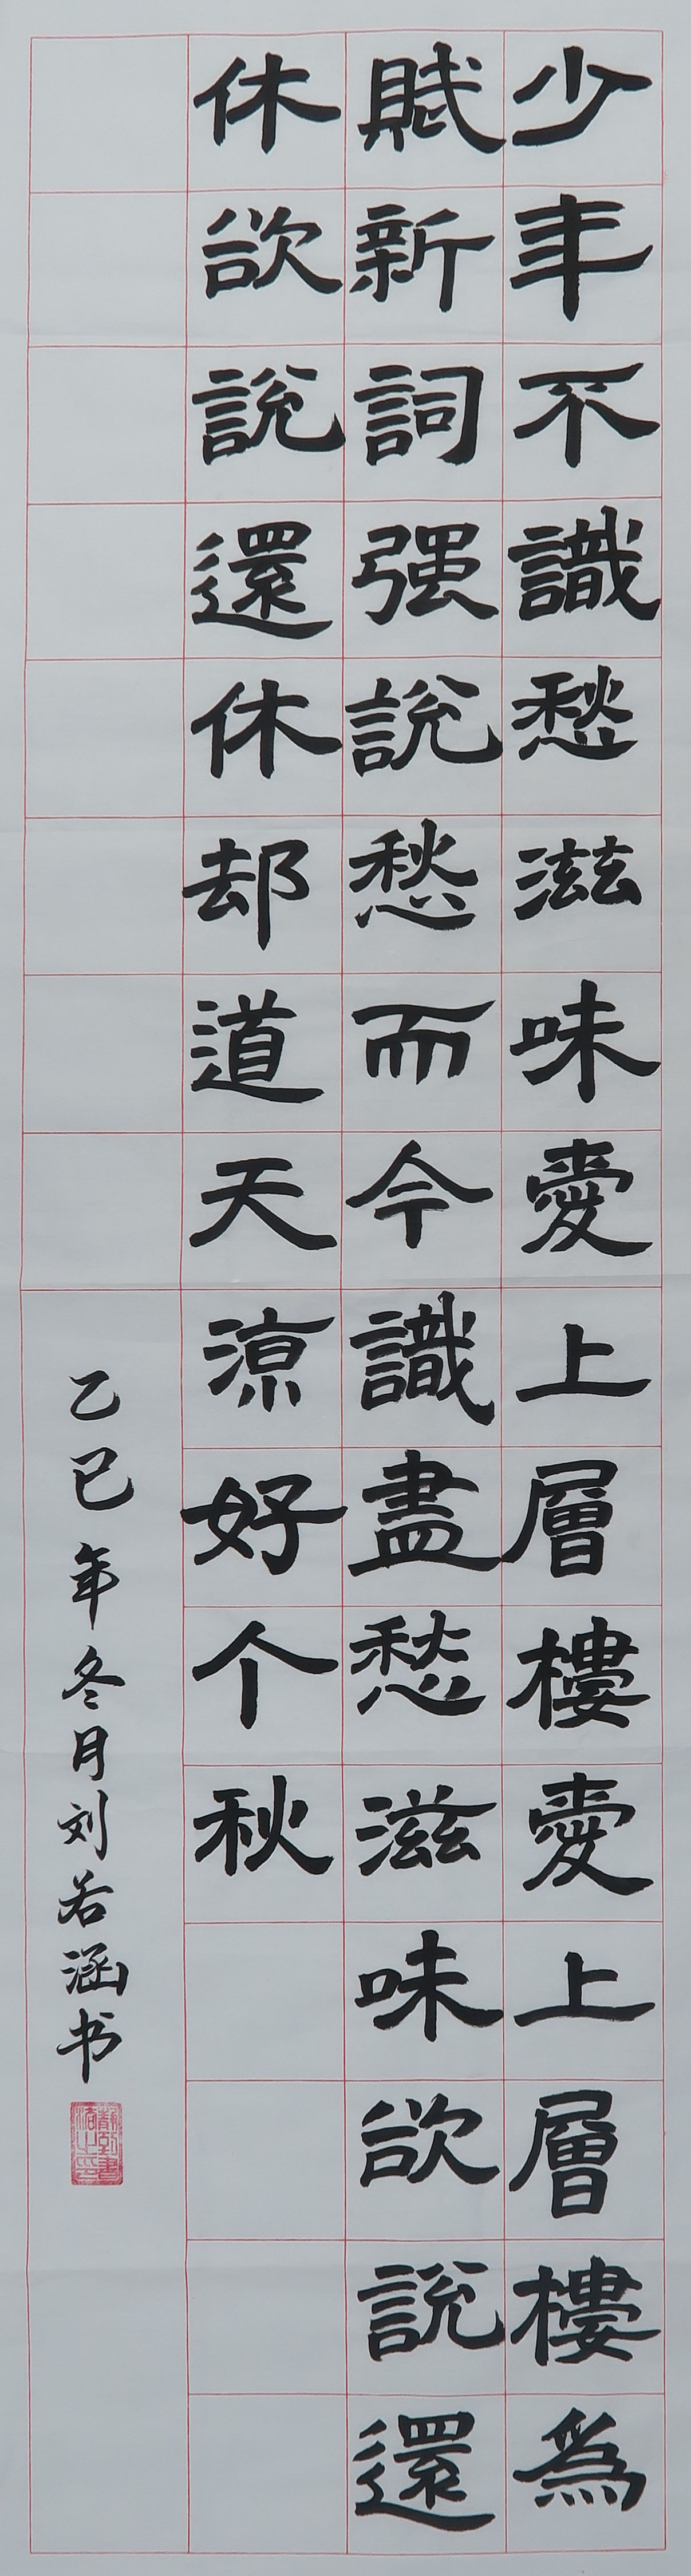 少年不識愁滋味愛上層樓愛上層樓為
賦新詞强說愁而今識盡愁滋味欲說還
休欲說還休却道天涼好个秋
乙巳年冬月刘若涵书